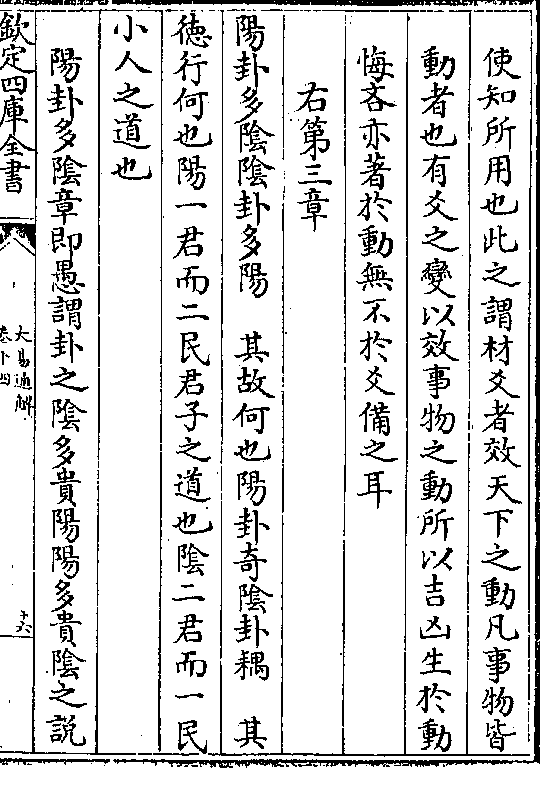 使知所用也此之謂材爻者效天下之動凡事物皆
動者也有爻之變以效事物之動所以吉凶生於動
悔吝亦著於動無不於爻備之耳
右第三章
陽卦多陰陰卦多陽　其故何也陽卦奇陰卦耦　其
徳行何也陽一君而二民君子之道也陰二君而一民
小人之道也
陽卦多陰章即愚謂卦之陰多貴陽陽多貴陰之説
欽定四庫全書
大易通解
卷十四
十六